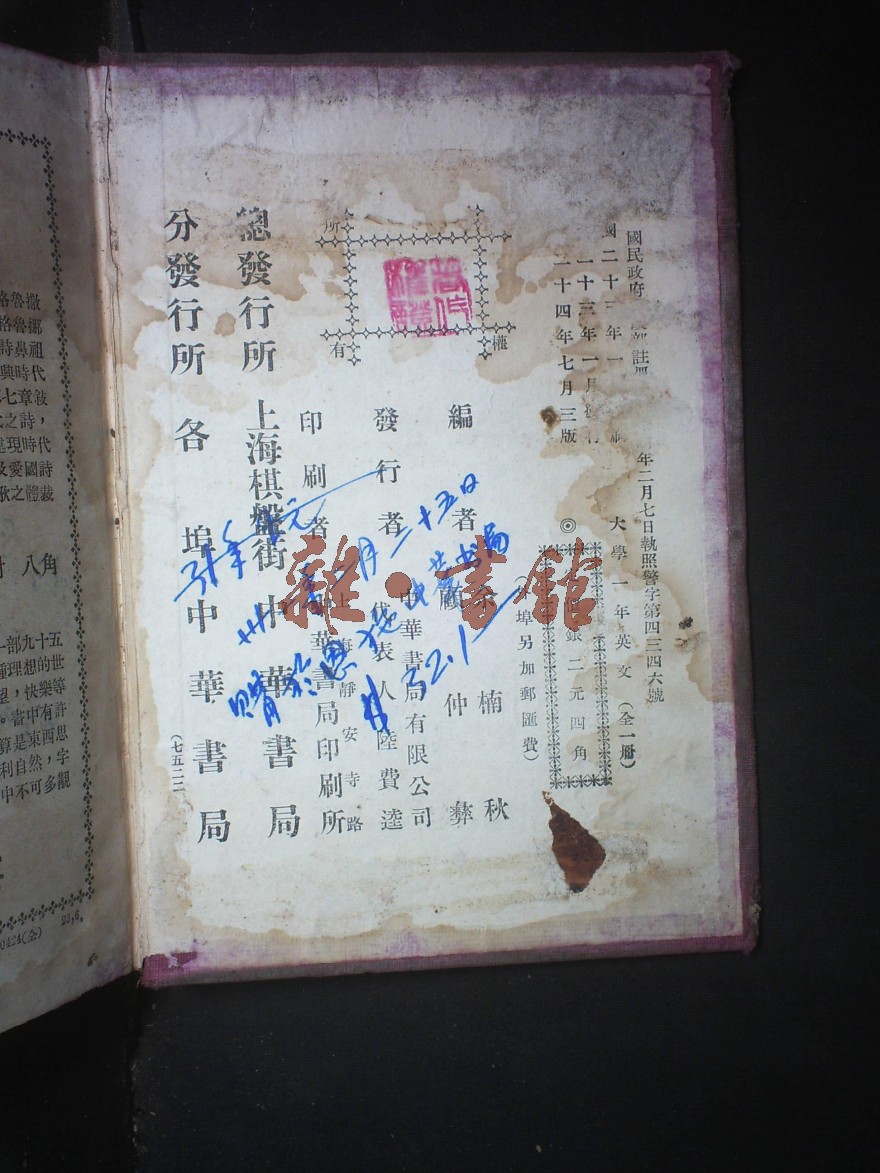 國民政府 部註冊 年二月七日執照警字第四三四六號
國二十三年一
二十三年一月發行
二十四年七月三版
大學一年英文(全一冊)
◎ 銀二元四角
埠另加郵匯費)
編者 余楠秋
顧仲彝
發行者 中華書局有限公司
代表人陸費逵
印刷者 中華書局印刷所
上海靜安寺路
總發行所 上海棋盤街 中華書局
分發行所 各埠中華書局
(七五二二)
權
所
有
月二十五日
購於
中華書局
雜·書館
格魯撒
格魯挪
詩鼻祖
興時代
七章敍
之詩,
現時代
及愛國詩
歌之體裁
八角
一部九十五
種理想的世
望,快樂等
。書中有許
算是東西思
利自然,字
中不可多觀
0424(全)
23,6,